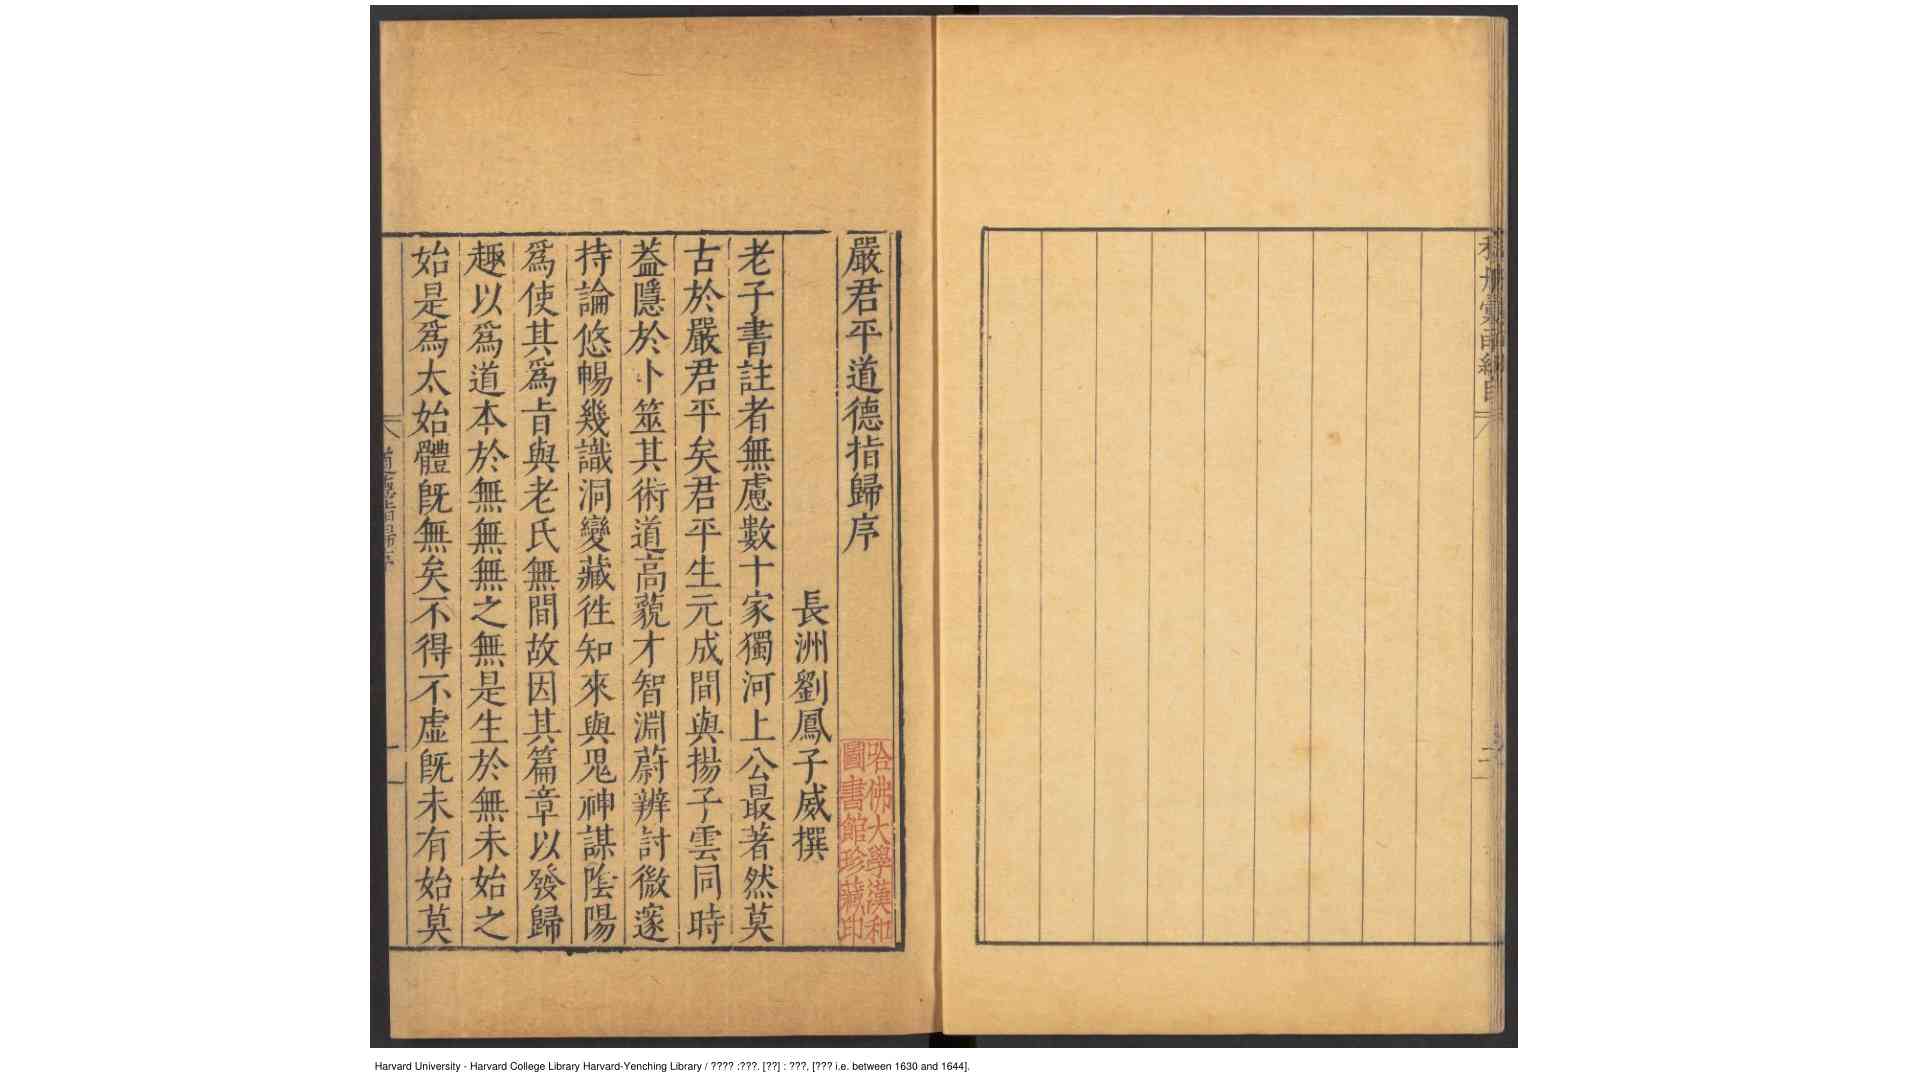 嚴君平道德指歸序
長洲劉鳳子威撰
老子書註者無慮數十家獨河上公最著然莫
古於嚴君平矣君平生元成間與揚子雲同時
葢隱於卜筮其術道高藐才智淵蔚辨討微邃
持論悠暢幾識洞變藏徃知來與鬼神謀陰陽
爲使其爲㫖與老氏無間故因其篇章以發歸
趣以爲道本於無無無之無是生於無未始之
始是爲太始體旣無矣不得不虛旣未有始莫
哈佛大學漢和
圖書館珍藏印
Harvard University - Harvard College Library Harvard-Yenching Library / ???? :???. [??] : ???, [??? i.e. between 1630 and 1644].